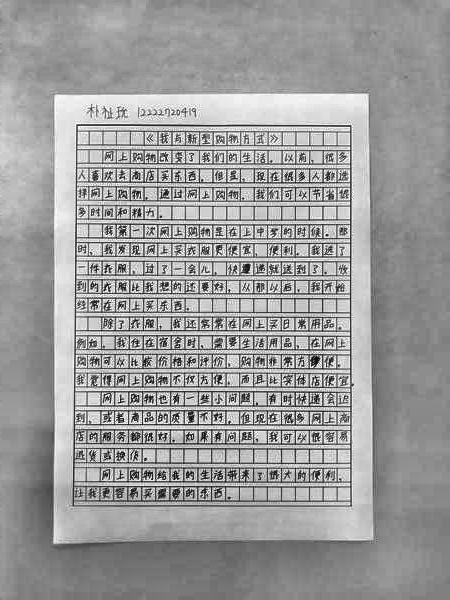 朴祉玧 12222720419
《我与新型购物方式》
网上购物改变了我们的生活。以前,很多
人喜欢去商店买东西。但是,现在很多人都选
择网上购物。通过网上购物,我们可以节省很
多时间和精力。
我第一次网上购物是在上中学的时候。那
时,我发现网上买衣服更便宜,便利。我选了
一件衣服,过了一会儿,快递就送到了。收
到的衣服比我想的还要好。从那以后,我开始
经常在网上买东西。
除了衣服,我还常常在网上买日常用品。
例如,我住在宿舍时,需要生活用品,在网上
购物可以比较价格和评价,购物非常方便。
我觉得网上购物不仅方便,而且比实体店便宜。
网上购物也有一些小问题。有时快递会迟
到,或者商品的质量不好。但现在很多网上商
店的服务都很好。如果有问题,我可以很容易
退货或换货。
网上购物给我的生活带来了很大的便利,
让我更容易买需要的东西。